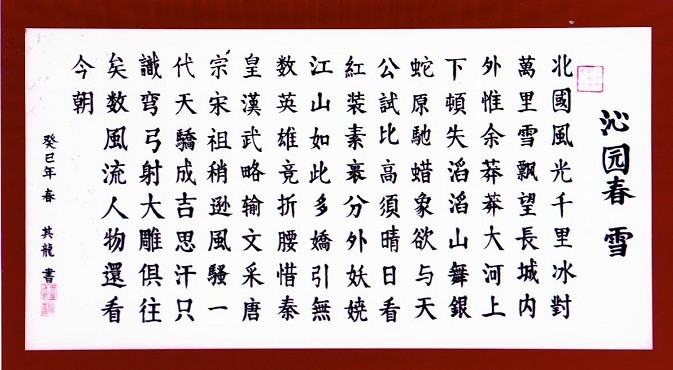 沁园春 雪
北國風光千里冰對
萬里雪飄望長城内
外惟余莽莽大河上
下頓失滔滔山舞銀
蛇原馳蜡象欲与天
公試比高須晴日看
紅裝素裹分外妖嬈
江山如此多嬌引無
数英雄竞折腰惜秦
皇漢武略输文采唐
宗宋祖稍逊風騷一
代天驕成吉思汗只
識彎弓射大雕俱往
矣数風流人物還看
今朝
癸巳年 春 其龍 書